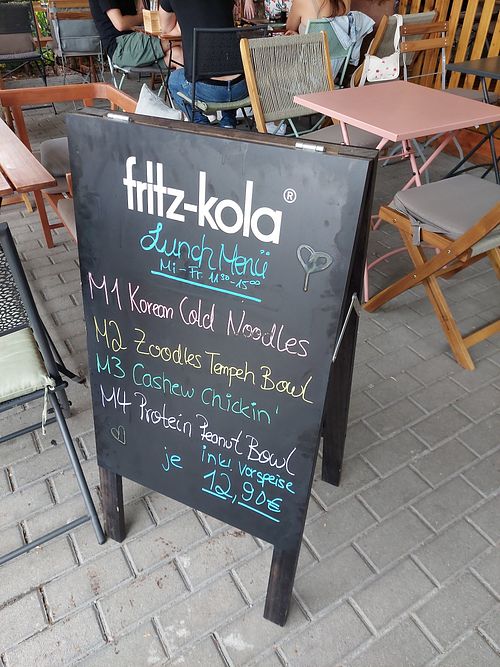 fritz-kola®
Lunch Menü
Mi-Fr. 11³⁰-15⁰⁰
M1 Korean Cold Noodles
M2 Zoodles Tempeh Bowl
M3 Cashew Chickin'
M4 Protein Peanut Bowl
inkl. Vorspeise
je 12,90€